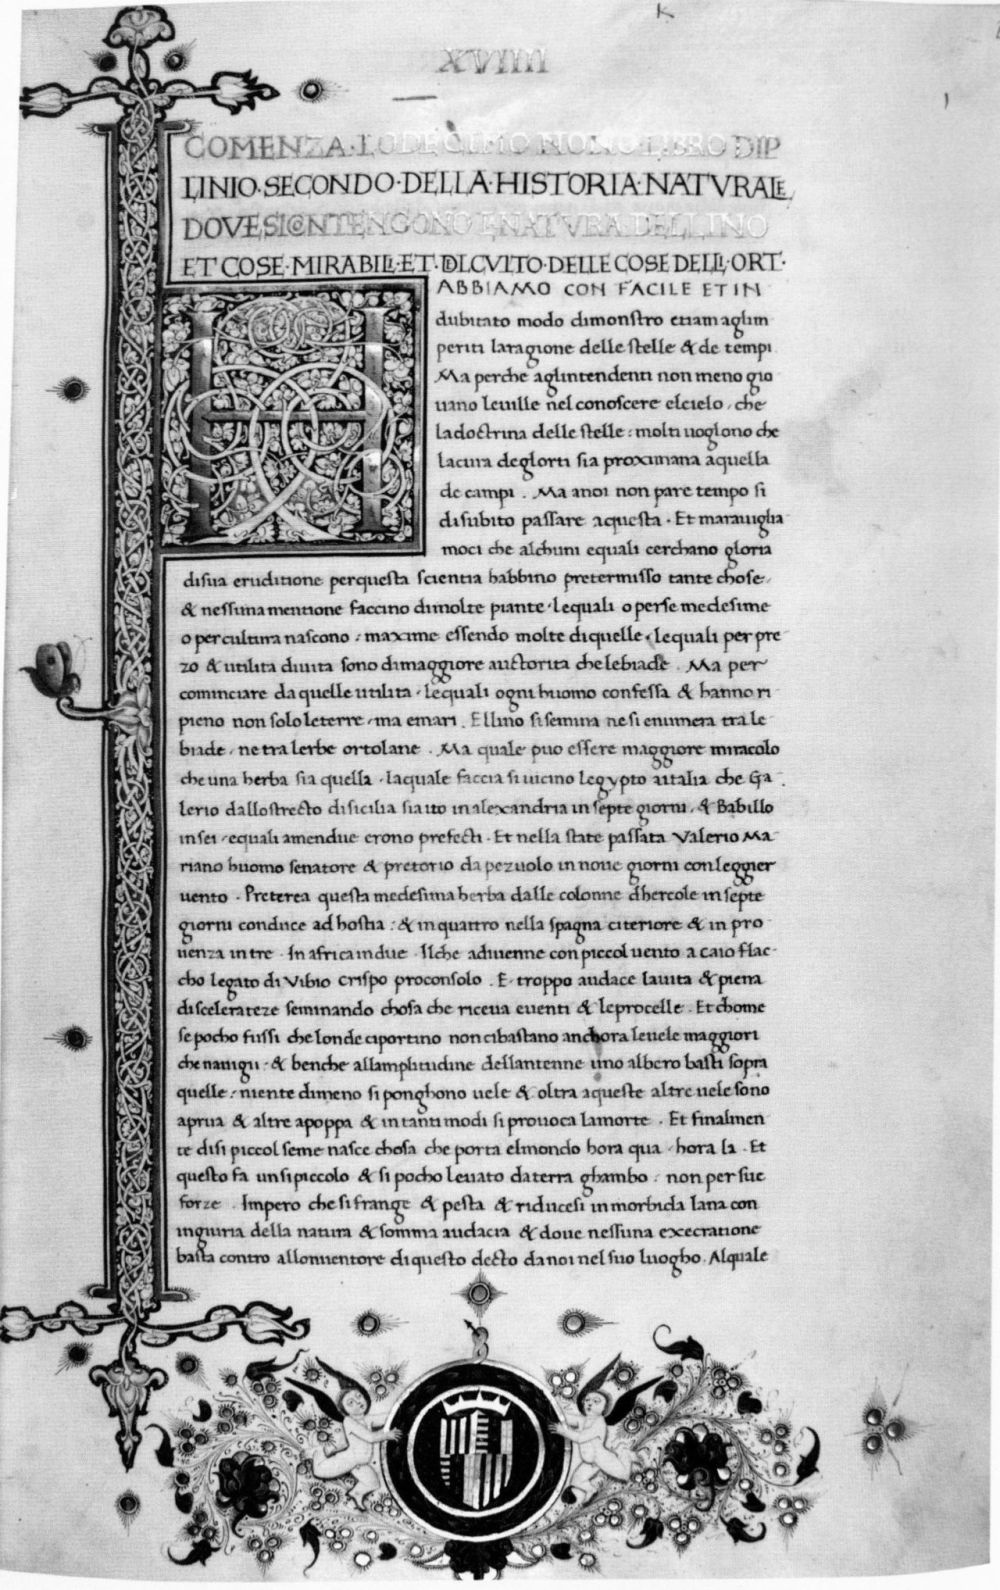 K
XVIIII
COMENZA·LO DECIMO NONO LIBRO DI P
LINIO·SECONDO·DELLA·HISTORIA·NATVRALE
DOVE SI CONTENGONO LNATVRA DEL LINO
ET COSE·MIRABILI·ET·DLCVLTO·DELLE COSE DELLI·ORT·
HABBIAMO CON FACILE ET IN
dubitato modo dimonstro etiam aglim
periti laragione delle stelle & de tempi
Ma perche aglintendenti non meno gio
uano leuille nel conoscere elcielo, che
ladoctrina delle stelle: molti uoglono che
lacura deglorti sia proximana aquella
de campi. Ma anoi non pare tempo si
disubito passare aquesta. Et marauiglia
moci che alchuni equali cerchano gloria
disua eruditione perquesta scientia habbino pretermisso tante chose,
& nessuna mentione faccino dimolte piante, lequali o perse medesime
o percultura nascono: maxime essendo molte diquelle, lequali per pre
zo & utilita diuita sono dimaggiore auctorita chelebiade. Ma per
cominciare daquelle utilita, lequali ogni huomo confessa & hanno ri
pieno non solo leterre, ma emari. Ellino sisemina nesi enumera tra le
biade, netra lerbe ortolane. Ma quale puo essere maggiore miracolo
che una herba sia quella, laquale faccia si uicino legypto aitalia che Ga
lerio dallostrecto disicilia sia ito inalexandria in septe giorni, & Babillo
insei, equali amendue erono prefecti. Et nella state passata Valerio Ma
riano huomo senatore & pretorio da pezuolo in noue giorni conleggier
uento. Preterea questa medesima herba dalle colonne dhercole in septe
giorni conduce ad hostia: & in quattro nella spagna citeriore & in pro
uenza in tre. In africa in due. Ilche aduenne con piccol uento a caio flac
cho legato di Vibio crispo proconsolo. E troppo audace lauita & piena
discelerateze seminando chosa che riceua euenti & leprocelle. Et chome
se pocho fussi che londe ciportino non cibastano anchora leuele maggiori
che nauigii: & benche allamplitudine dellantenne uno albero basti sopra
quelle: niente dimeno si ponghono uele & oltra aqueste altre uele sono
aprua & altre apoppa & in tanti modi si prouoca lamorte. Et finalmen
te disi piccol seme nasce chosa che porta elmondo hora qua, hora la. Et
questo fa unsi piccolo & si pocho leuato daterra ghambo: non per sue
forze. Impero che si frange & pesta & riducesi in morbida lana con
ingiuria della natura & somma audacia & doue nessuna execratione
basta contro allonuentore di questo decto da noi nel suo luogho. Alquale